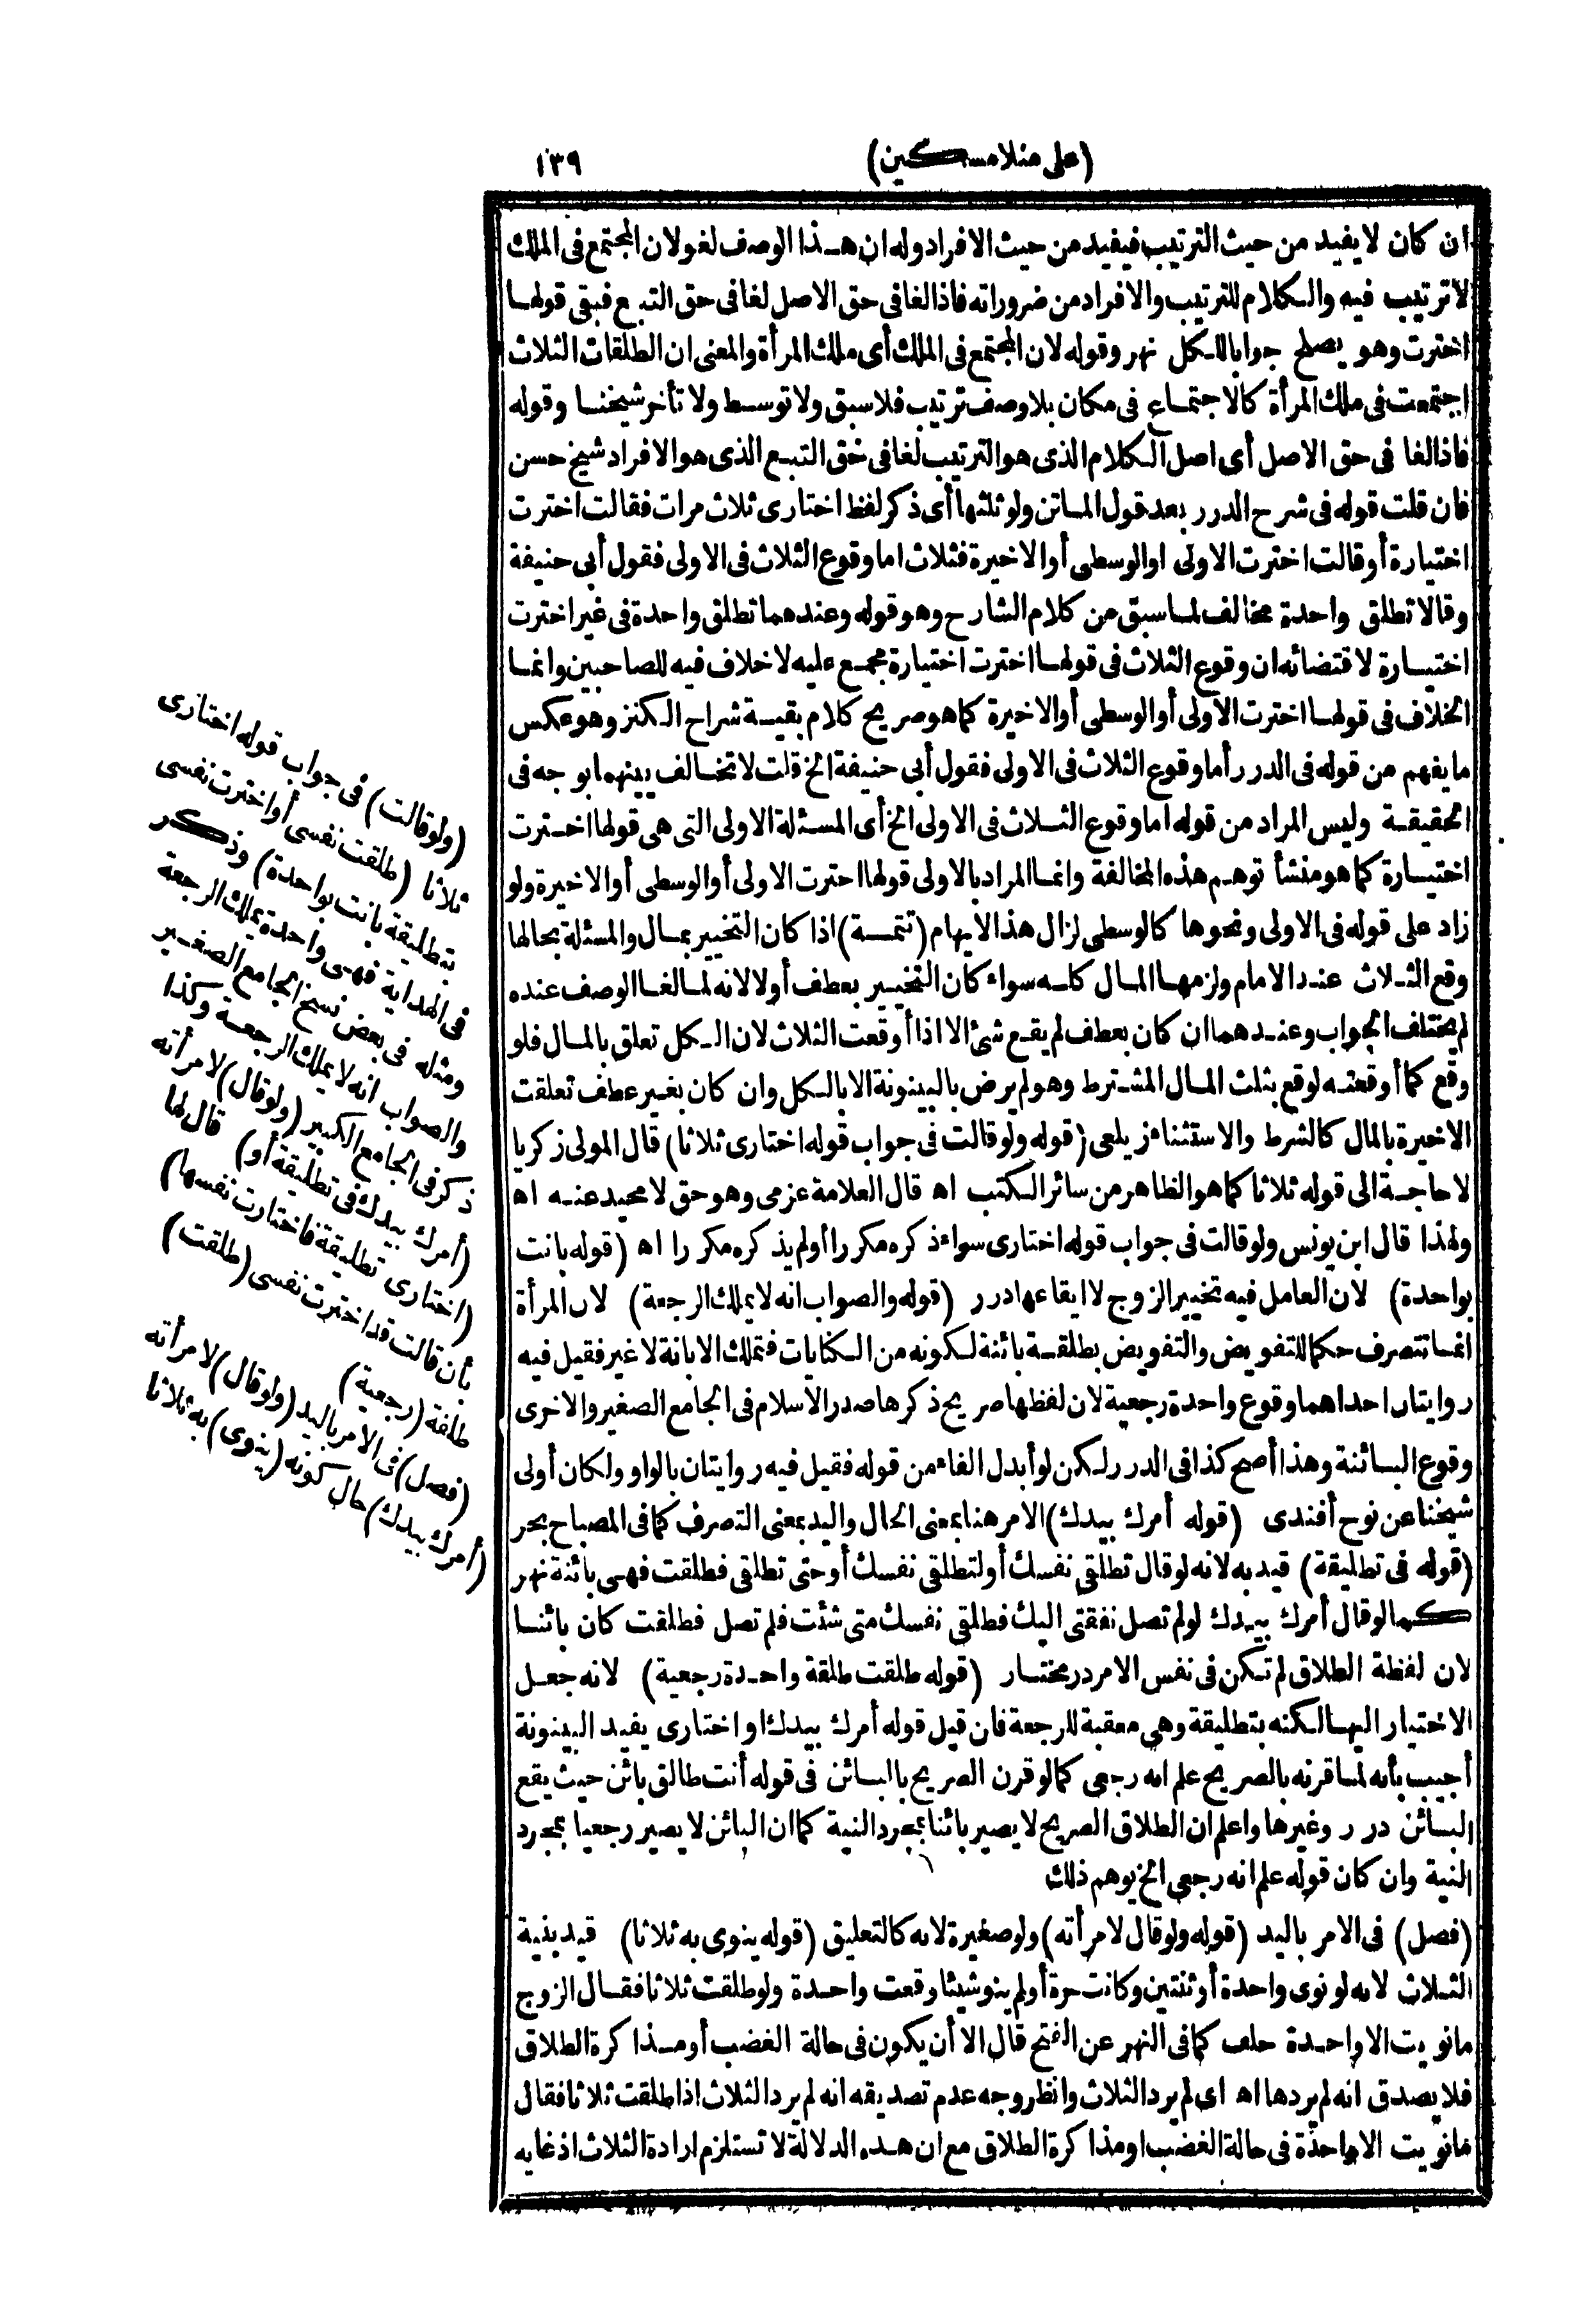 (على منلا مسكين) ١٣٩
ان كان لا يفيد من حيث الترتيب فيفيد من حيث الافراد وله ان هذا الوصف لغو لان المجتمع فى الملك
لا ترتيب فيه والكلام للترتيب والافراد من ضروراته فاذا لغا فى حق الاصل لغا فى حق التبع فبقى قولها
اخترت وهو يصلح جوابا للكل نهر وقوله لان المجتمع فى الملك أى ملك المرأة والمعنى ان الطلقات الثلاث
اجتمعت فى ملك المرأة كالاجتماع فى مكان بلا وصف ترتيب فلا سبق ولا توسط ولا تأخر شيخنا وقوله
فاذا لغا فى حق الاصل أى اصل الكلام الذى هو الترتيب لغا فى حق التبع الذى هو الافراد شيخ حسن
فان قلت قوله فى شرح الدرر بعد قول الماتن ولو ثلثها أى ذكر لفظ اختارى ثلاث مرات فقالت اخترت
اختيارة أو قالت اخترت الاولى او الوسطى أو الاخيرة فثلاث اما وقوع الثلاث فى الاولى فقول أبى حنيفة
وقالا تطلق واحدة مخالف لما سبق من كلام الشارح وهو قوله وعندهما تطلق واحدة فى غير اخترت
اختيارة لاقتضائه ان وقوع الثلاث فى قولها اخترت اختيارة مجمع عليه لا خلاف فيه للصاحبين وانما
الخلاف فى قولها اخترت الاولى أو الوسطى أو الاخيرة كما هو صريح كلام بقية شراح الكنز وهو عكس
ما يفهم من قوله فى الدرر أما وقوع الثلاث فى الاولى فقول أبى حنيفة الخ قلت لا تخالف بينهما بوجه فى
الحقيقة وليس المراد من قوله اما وقوع الثلاث فى الاولى الخ أى المسئلة الاولى التى هى قولها اخترت
اختيارة كما هو منشأ توهم هذه المخالفة وانما المراد بالاولى قولها اخترت الاولى أو الوسطى أو الاخيرة ولو
زاد على قوله فى الاولى ونحوها كالوسطى لزال هذا الايهام (تتمة) اذا كان التخيير بمال والمسئلة بحالها
وقع الثلاث عند الامام ولزمها المال كله سواء كان التخيير بعطف أولا لانه لما لغا الوصف عنده
لم يختلف الجواب وعندهما ان كان بعطف لم يقع شئ الا اذا أوقعت الثلاث لان الكل تعلق بالمال فلو
وقع كما أوقعته لوقع بثلث المال المشترط وهو لم يرض بالبينونة الا بالكل وان كان بغير عطف تعلقت
الاخيرة بالمال كالشرط والاستثناء زيلعى (قوله ولو قالت فى جواب قوله اختارى ثلاثا) قال المولى زكريا
لا حاجة الى قوله ثلاثا كما هو الظاهر من سائر الكتب اه قال العلامة عزمى وهو حق لا محيد عنه اه
ولهذا قال ابن يونس ولو قالت فى جواب قوله اختارى سواء ذكره مكررا أو لم يذكره مكررا اه (قوله بانت
بواحدة) لان العامل فيه تخيير الزوج لا ايقاعها درر (قوله والصواب انه لا يملك الرجعة) لان المرأة
انما تتصرف حكما للتفويض والتفويض بطلقة بائنة لكونه من الكنايات فتملك الابانة لا غير فقيل فيه
روايتان احداهما وقوع واحدة رجعية لان لفظها صريح ذكرها صدر الاسلام فى الجامع الصغير والاخرى
وقوع البائنة وهذا أصح كذا فى الدرر لكن لو أبدل الفاء من قوله فقيل فيه روايتان بالواو ولكان أولى
شيخنا عن نوح أفندى (قوله أمرك بيدك) الامر هنا بمعنى الحال واليد بمعنى التصرف كما فى المصباح بحر
(قوله فى تطليقة) قيد به لانه لو قال تطلقى نفسك أو لتطلقى نفسك أو حتى تطلقى فطلقت فهى بائنة نهر
كما لو قال أمرك بيدك لو لم تصل نفقتى اليك فطلقى نفسك متى شئت فلم تصل فطلقت كان بائنا
لان لفظة الطلاق لم تكن فى نفس الامر در مختار (قوله طلقت طلقة واحدة رجعية) لانه جعل
الاختيار اليها لكنه بتطليقة وهى معقبة للرجعة فان قيل قوله أمرك بيدك او اختارى يفيد البينونة
أجيب بأنه لما قرنه بالصريح علم انه رجعى كما لو قرن الصريح بالبائن فى قوله أنت طالق بائن حيث يقع
البائن درر وغيرها واعلم ان الطلاق الصريح لا يصير بائنا بمجرد النية كما ان البائن لا يصير رجعيا بمجرد
النية وان كان قوله علم انه رجعى الخ يوهم ذلك
(فصل) فى الامر باليد (قوله ولو قال لامرأته) ولو صغيرة لانه كالتعليق (قوله ينوى به ثلاثا) قيد بنية
الثلاث لانه لو نوى واحدة أو ثنتين وكانت حرة أو لم ينو شيئا وقعت واحدة ولو طلقت ثلاثا فقال الزوج
ما نويت الا واحدة حلف كما فى النهر عن الفتح قال الا أن يكون فى حالة الغضب أو مذاكرة الطلاق
فلا يصدق انه لم يردها اه اى لم يرد الثلاث وانظر وجه عدم تصديقه انه لم يرد الثلاث اذا طلقت ثلاثا فقال
ما نويت الا واحدة فى حالة الغضب او مذاكرة الطلاق مع ان هذه الدلالة لا تستلزم ارادة الثلاث اذ غايه
(ولو قالت) فى جواب قوله اختارى
ثلاثا (طلقت نفسى أو اخترت نفسى
بتطليقة بانت بواحدة) وذكر
فى الهداية فهى واحدة يملك الرجعة
ومثله فى بعض نسخ الجامع الصغير
والصواب انه لا يملك الرجعة وكذا
ذكر فى الجامع الكبير (ولو قال) لامرأته
(أمرك بيدك فى تطليقة أو) قال لها
(اختارى تطليقة فاختارت نفسها)
بأن قالت قد اخترت نفسى (طلقت)
طلقة (رجعية)
(فصل) فى الامر باليد (ولو قال) لامرأته
(أمرك بيدك) حال كونه (ينوى) به ثلاثا